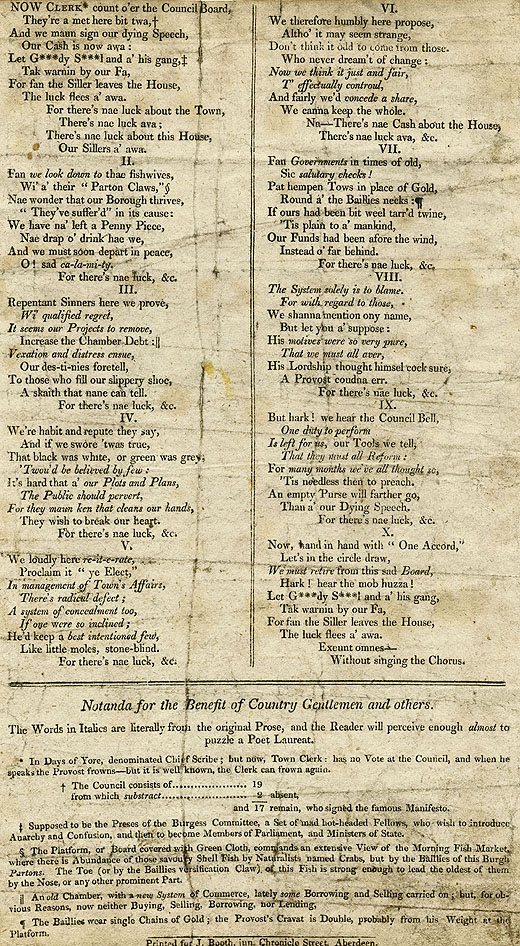 NOW CLERK* count o'er the Council Board,
They're a met here bit twa,†
And we maun sign our dying Speech,
Our Cash is now awa :
Let G***dy S***l and a' his gang,‡
Tak warnin by our Fa,
For fan the Siller leaves the House,
The luck flees a' awa.
For there's nae luck about the Town,
There's nae luck ava ;
There's nae luck about this House,
Our Sillers a' awa.
II.
Fan we look down to thae fishwives,
Wi' a' their “ Parton Claws,”§
Nae wonder that our Borough thrives,
“ They've suffer'd” in its cause :
We have na' left a Penny Piece,
Nae drap o' drink hae we,
And we must soon depart in peace,
O ! sad ca-la-mi-ty.
For there's nae luck, &c.
III.
Repentant Sinners here we prove,
Wi' qualified regret,
It seems our Projects to remove,
Increase the Chamber Debt :||
Vexation and distress ensue,
Our des-ti-nies foretell,
To those who fill our slippery shoe,
A skaith that nane can tell.
For there's nae luck, &c.
IV.
We're habit and repute they say,
And if we swore 'twas true,
That black was white, or green was grey,
'Twou'd be believed by few :
It's hard that a' our Plots and Plans,
The Public should pervert,
For they maun ken that cleans our hands,
They wish to break our heart.
For there's nae luck, &c.
V.
We loudly here re-it-e-rate,
Proclaim it “ ye Elect,”
In management of Town's Affairs,
There's radical defect ;
A system of concealment too,
If oye were so inclined ;
He'd keep a best intentioned few,
Like little moles, stone-blind.
For there's nae luck, &c.
VI.
We therefore humbly here propose,
Altho' it may seem strange,
Don't think it odd to come from those,
Who never dream't of change :
Now we think it just and fair,
T' effectually controul,
And fairly we'd concede a share,
We canna keep the whole.
Na—There's nae Cash about the House,
There's nae luck ava, &c.
VII.
Fan Governments in times of old,
Sic salutary checks !
Pat hempen Tows in place of Gold,
Round a' the Baillies necks :¶
If ours had been bit weel tarr'd twine,
'Tis plain to a' mankind,
Our Funds had been afore the wind,
Instead o' far behind.
For there's nae luck, &c.
VIII.
The System solely is to blame.
For with regard to those,
We shanna mention ony name,
But let you a' suppose :
His motives were so very pure,
That we must all aver,
His Lordship thought himsel cock sure,
A Provost coudna err.
For there's nae luck, &c.
IX.
But hark ! we hear the Council Bell,
One duty to perform
Is left for us, our Tools we tell,
That they must all Reform :
For many months we've all thought so,
'Tis needless then to preach.
An empty Purse will farther go,
Than a' our Dying Speech.
For there's nae luck, &c.
X.
Now, hand in hand with “ One Accord,”
Let's in the circle draw,
We must retire from this sad Board,
Hark ! hear the mob huzza !
Let G***dy S***l and a' his gang,
Tak warnin by our Fa,
For fan the Siller leaves the House,
The luck flees a' awa.
Exeunt omnes—
Without singing the Chorus.
Notanda for the Benefit of Country Gentlemen and others.
The Words in Italics are literally from the original Prose, and the Reader will perceive enough almost to
puzzle a Poet Laureat.
* In Days of Yore, denominated Chief Scribe ; but now, Town Clerk : has no Vote at the Council, and when he
speaks the Provost frowns—but it is well known, the Clerk can frown again.
† The Council consists of................... 19
from which substract................... 2 absent,
and 17 remain, who signed the famous Manifesto.
‡ Supposed to be the Preses of the Burgess Committee, a Set of mad hot-headed Fellows, who wish to introduce
Anarchy and Confusion, and then to become Members of Parliament, and Ministers of State.
§ The Platform, or Board covered with Green Cloth, commands an extensive View of the Morning Fish Market,
where there is Abundance of those savoury Shell Fish by Naturalists named Crabs, but by the Baillies of this Burgh
Partons. The Toe (or by the Baillies versification Claw) of this Fish is strong enough to lead the oldest of them
by the Nose, or any other prominent Part.
|| An old Chamber, with a new System of Commerce, lately some Borrowing and Selling carried on ; but, for ob-
vious Reasons, now neither Buying, Selling, Borrowing, nor Lending,
¶ The Baillies wear single Chains of Gold ; the Provost's Cravat is Double, probably from his Weight at the
Platform.
Printed for J. Booth, jun. Chronicle Street, Aberdeen.